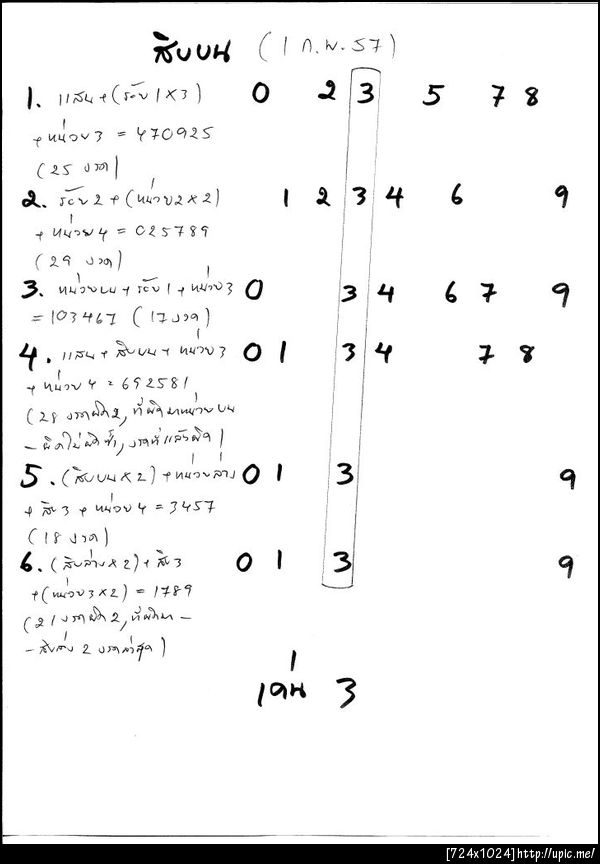 สิบบน (1 ก.พ. 57)
1. แสน + (ร้อย1X3) 0 2 3 5 7 8
+ หน่วย3 = 470925
(25 งวด)
2. ร้อย2 + (หน่วย2x2) 1 2 3 4 6 9
+ หน่วย4 = 025789
(29 งวด)
3. หน่วยบน + ร้อย1 + หน่วย3 0 3 4 6 7 9
= 103467 (17 งวด)
4. แสน + สิบบน + หน่วย3 0 1 3 4 7 8
+ หน่วย4 = 692581
(28 งวดผิด2, ที่ผิดมาหน่วยบน
- ผิดไม่ผิดซ้ำ, งวดที่แล้วผิด)
5. (สิบบนx2) + หน่วยล่าง 0 1 3 9
+ สิบ3 + หน่วย4 = 3457
(18 งวด)
6. (สิบล่างx2) + สิบ3 0 1 3 9
+ (หน่วย3x2) = 1789
(21 งวดผิด2, ที่ผิดมา -
- 2 งวดล่าสุด)
เด่น 3
[724x1024]http://upic.me/